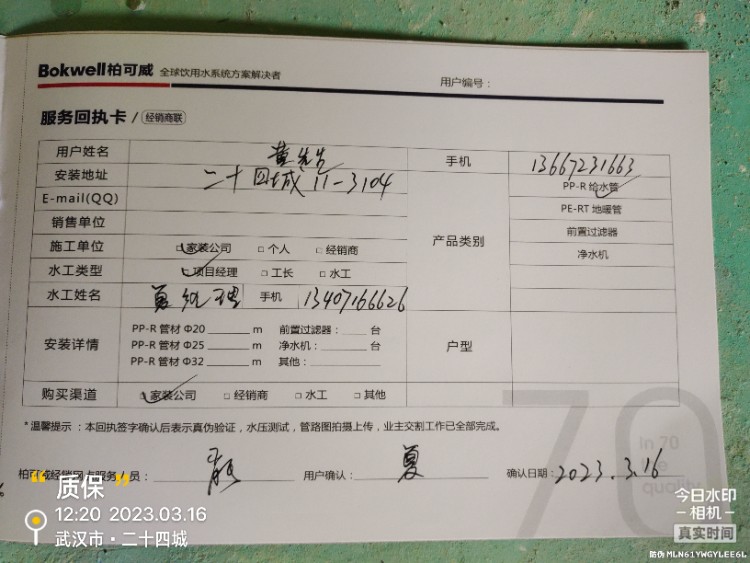 Bokwell柏可威 全球饮用水系统方案解决者
用户编号：
服务回执卡 / 经销商联
用户姓名 黄先生 手机 13667231663
安装地址 二十四城 11-3104
E-mail(QQ)
销售单位
施工单位 □家装公司 □个人 □经销商
水工类型 □项目经理 □工长 □水工
水工姓名 夏经理 手机 13407166626
产品类别
PP-R 给水管
PE-RT 地暖管
前置过滤器
净水机
安装详情
PP-R 管材 Φ20 m 前置过滤器： 台
PP-R 管材 Φ25 m 净水机： 台
PP-R 管材 Φ32 m 其他：
户型
购买渠道 □家装公司 □经销商 □水工 □其他
*温馨提示：本回执签字确认后表示真伪验证，水压测试，管路图拍摄上传，业主交割工作已全部完成。
70
In 70
life
quality
柏可威经销网点服务人员： 用户确认： 夏 确认日期：2023.3.16
质保
12:20 2023.03.16
武汉市·二十四城
今日水印
相机
真实时间
防伪 MLN61YWGYLEE6L